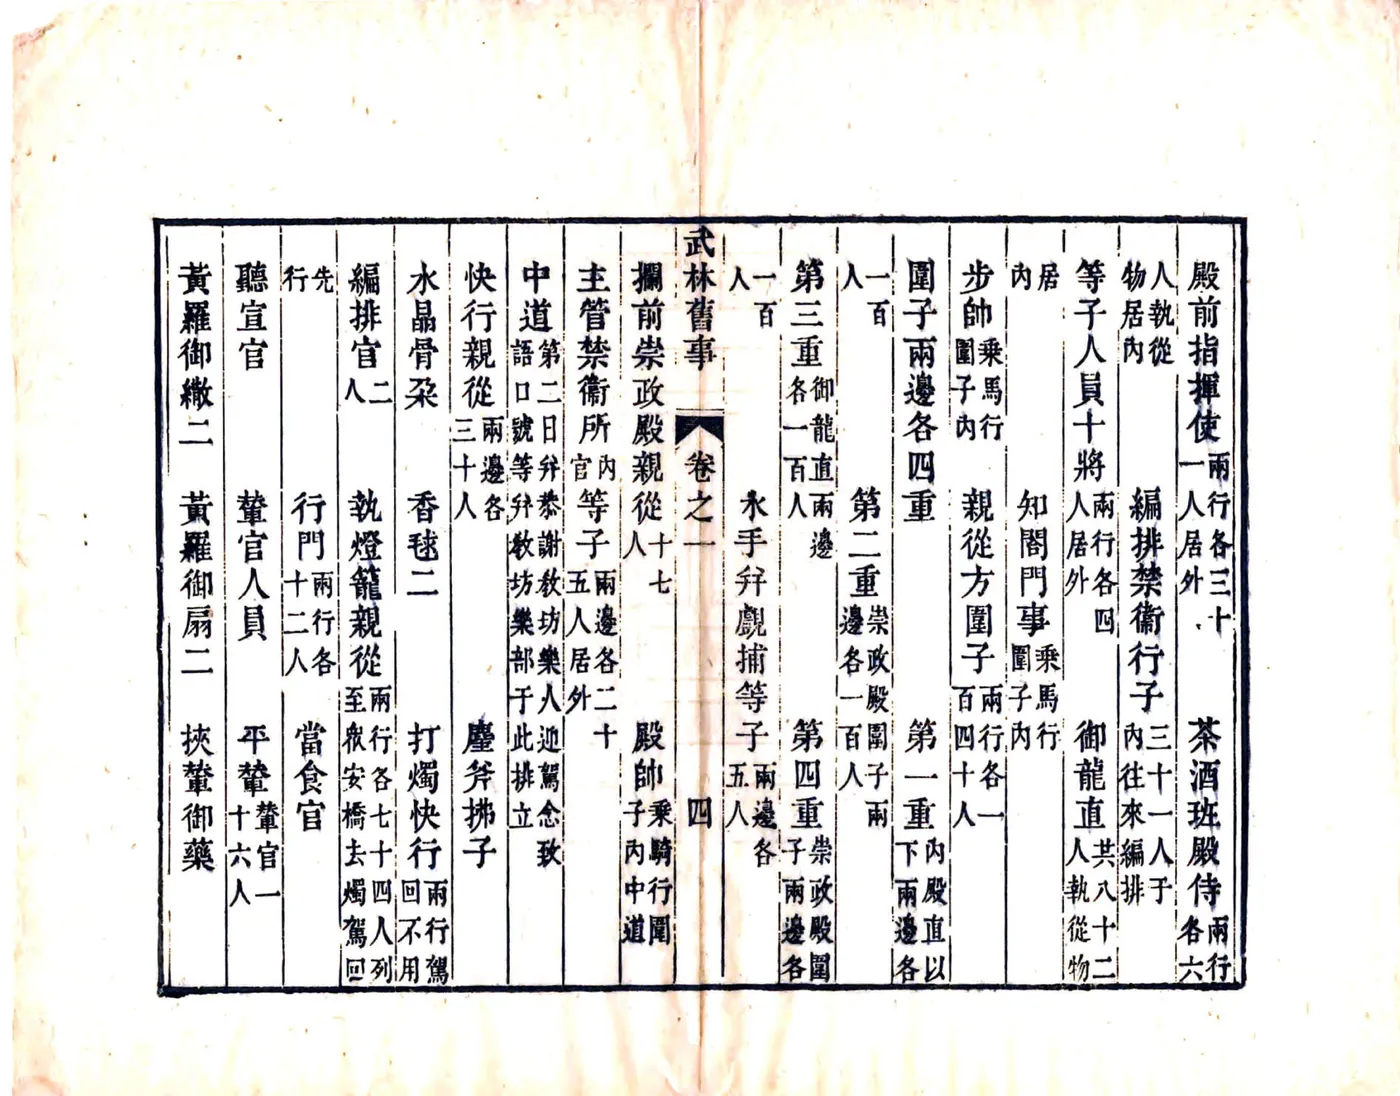 殿前指揮使兩行各三十一人居外 茶酒班殿侍兩行各六
人執從物居內 編排禁衞行子三十一人于內往來編排
等子人員十將兩行各四人居外 御龍直共八十二人執從物
居內 知閤門事乗馬行圍子內
步帥乗馬行圍子內 親從方圍子兩行各一百四十人
圍子兩邊各四重 第一重內殿直以下兩邊各
一百人 第二重崇政殿圍子兩邊各一百人
第三重御龍直兩邊各一百人 第四重崇政殿圍子兩邊各
一百人 水手幷覷捕等子兩邊各五人
武林舊事 卷之一 四
攔前崇政殿親從十七人 殿帥乗騎行圍子內中道
主管禁衞所內官 等子兩邊各二十五人居外
中道第二日幷恭謝敎坊樂人迎駕念致語口號等幷敎坊樂部于此排立
快行親從兩邊各三十人 麈斧拂子
水晶骨朶 香毬二 打燭快行兩行駕回不用
編排官二人 執燈籠親從兩行各七十四人列至衆安橋去燭駕回
先行 行門兩行各十二人 當食官
聽宣官 輦官人員 平輦輦官一十六人
黃羅御繖二 黃羅御扇二 挾輦御藥